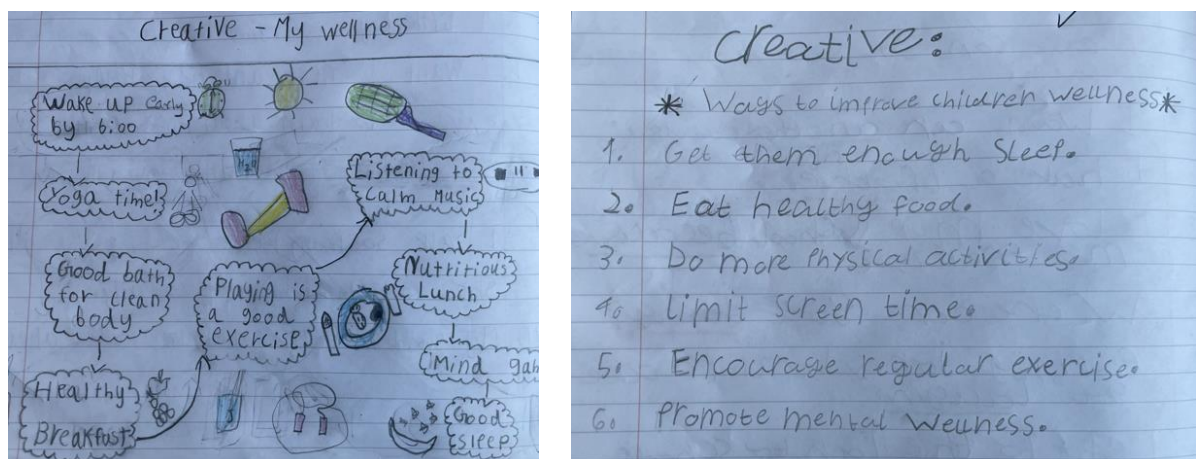 Creative - My wellness
Wake up early
by 6:00
Yoga time!
Good bath
for clean
body
Healthy
Breakfast
Playing is
a good
exercise
Listening to
Calm Music
Nutritious
Lunch
Mind
Good
Sleep
Creative:
* Ways to improve children wellness*
1. Get them enough Sleep.
2. Eat healthy food.
3. Do more Physical activities.
4. Limit screen time.
5. Encourage regular exercise.
6. Promote mental Wellness.